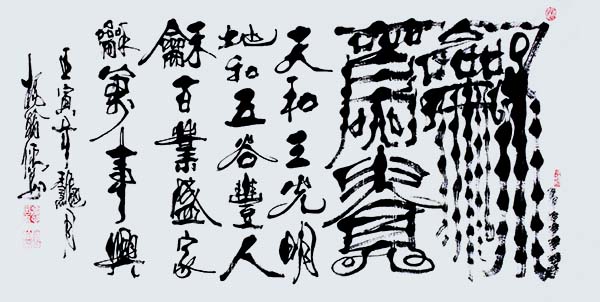 龢
爲貴
天和三光明
地和五谷豐人
龢百業盛家
龢萬事興
壬寅年龍月